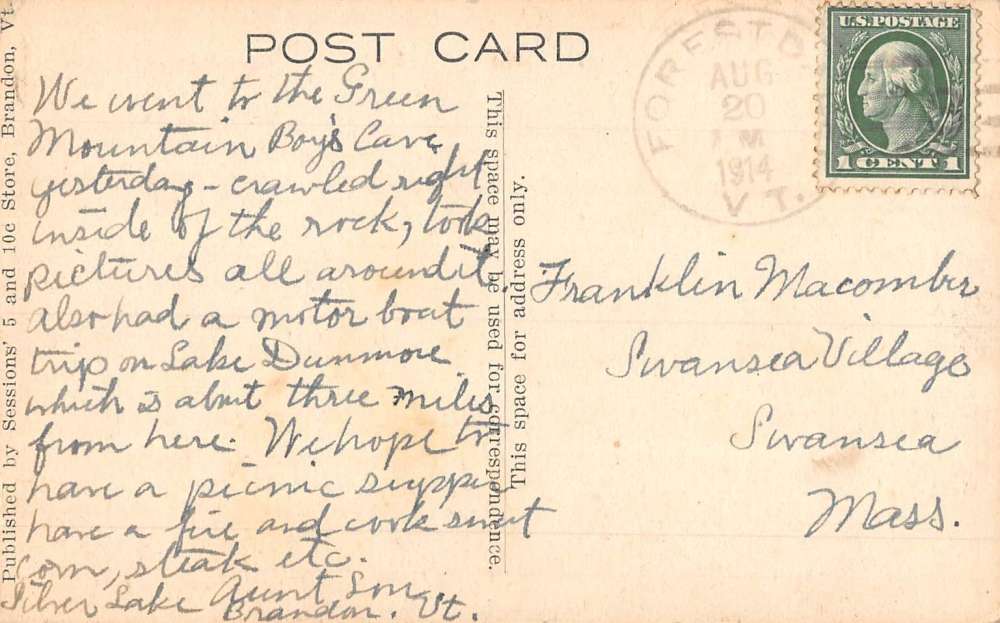 POST CARD
Published by Sessions' 5 and 10c Store, Brandon, Vt.
We went to the Green
Mountain Boy's Cave
yesterday - crawled right
inside of the rock, took
pictures all around it.
also had a motor boat
trip on Lake Dunmore
which is about three miles
from here. We hope to
have a picnic supper
have a fire and cook sweet
corn, steak etc.
Aunt Son.
Silver Lake
Brandon. Vt.
This space may be used for correspondence.
This space for address only.
FOREST D
AUG
20
M
1914
VT.
U.S. POSTAGE
1 CENT 1
Franklin Macomber
Swansea Village
Swansea
Mass.